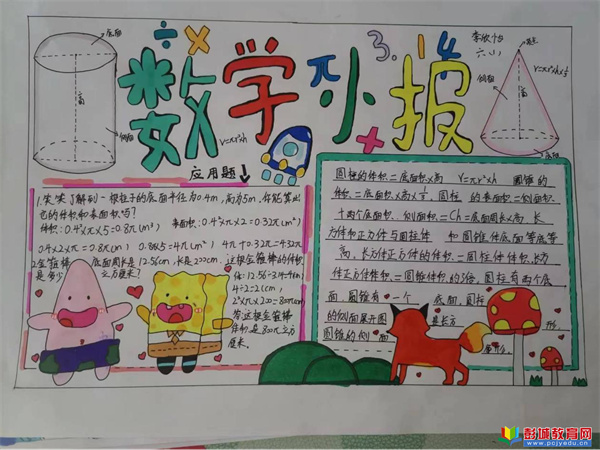 数学小报
3.14
李欣怡
六、(1)
底面
高
侧面
V=πr²h
顶点
侧面
高
底面
V=πr²h×⅓
应用题
1.笑笑了解到一根柱子的底面半径为0.4m,高为5m,你能算出
它的体积和表面积吗?
体积:0.4²×π×5=0.8π(m³) 表面积:0.4²×π×2=0.32π(m²)
0.4×2×π=0.8π(m) 0.8π×5=4π(m²) 4π+0.32π=4.32π
2.金箍棒 底面周长是12.56cm,长是200cm,这根金箍棒的体积
是多少 立方厘米?
体:12.56÷3.14=4cm
4÷2=2(cm)
2²×π×200=800π(cm³)
答:这根金箍棒
体积是800π立方
厘米。
圆柱的体积=底面积×高 V=πr²h 圆锥的
体积=底面积×高×⅓ 圆柱的表面积=侧面积
+两个底面积 侧面积=Ch=底面周长×高 长
方体和正方体与圆柱体 和圆锥体底面等底等
高,长方体正方体的体积=圆柱体体积 长方
体正方体体积=圆锥体积的3倍,圆柱有两个底
面,圆锥有一个 底面,圆柱
的侧面展开图 是长方 形
圆锥的侧面
彭城教育网
www.pcjyedu.cn